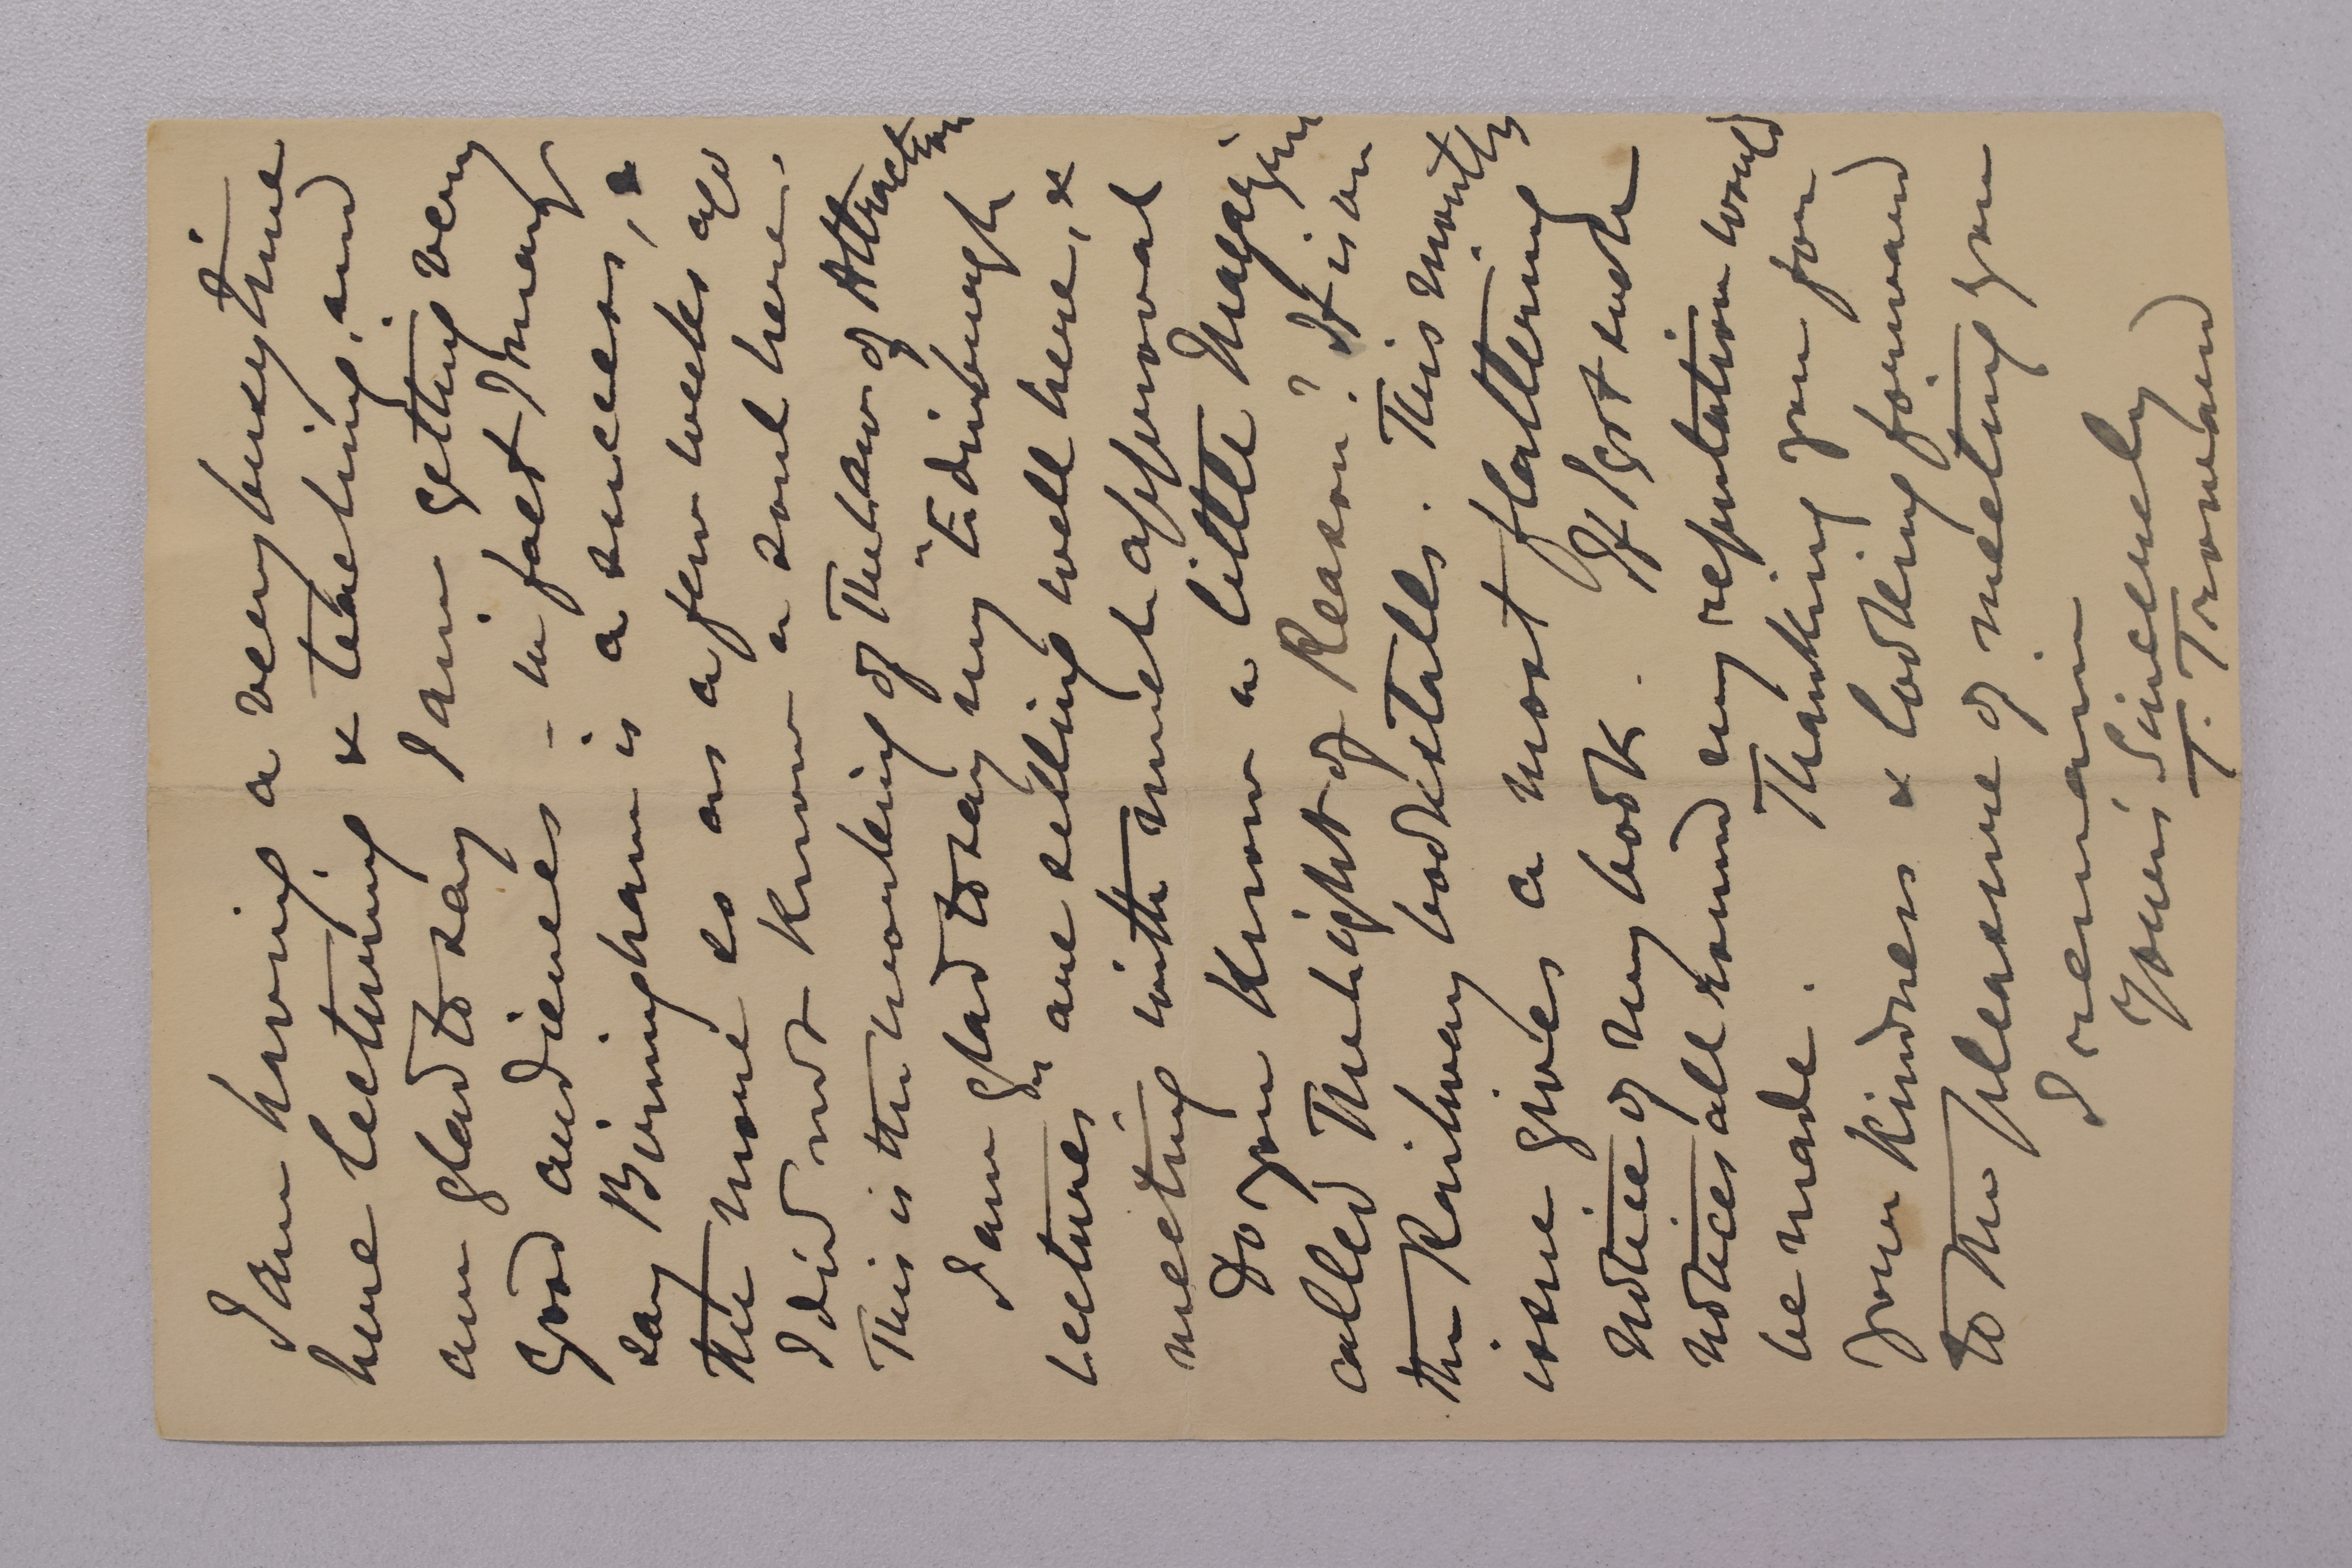 I am having a very busy time
here lecturing & teaching, and
am glad to say I am getting very
good audiences - in fact I may
say Birmingham is a success, &
the more so as a few weeks ago
I did not know a soul here.
This is the working of The Law of Attraction
I am glad to say my "Edinburgh
Lectures" are selling well here, &
meeting with much approval
Do you know a little Magazine
called The Light of Reason? It is on
the Railway bookstalls. This month's
issue gives a most flattering
notice of my book. If I got such
notices all round my reputation would
be made. Thanking you for
your kindness & looking forward
to the pleasure of meeting you
I remain
Yours Sincerely
T. Troward